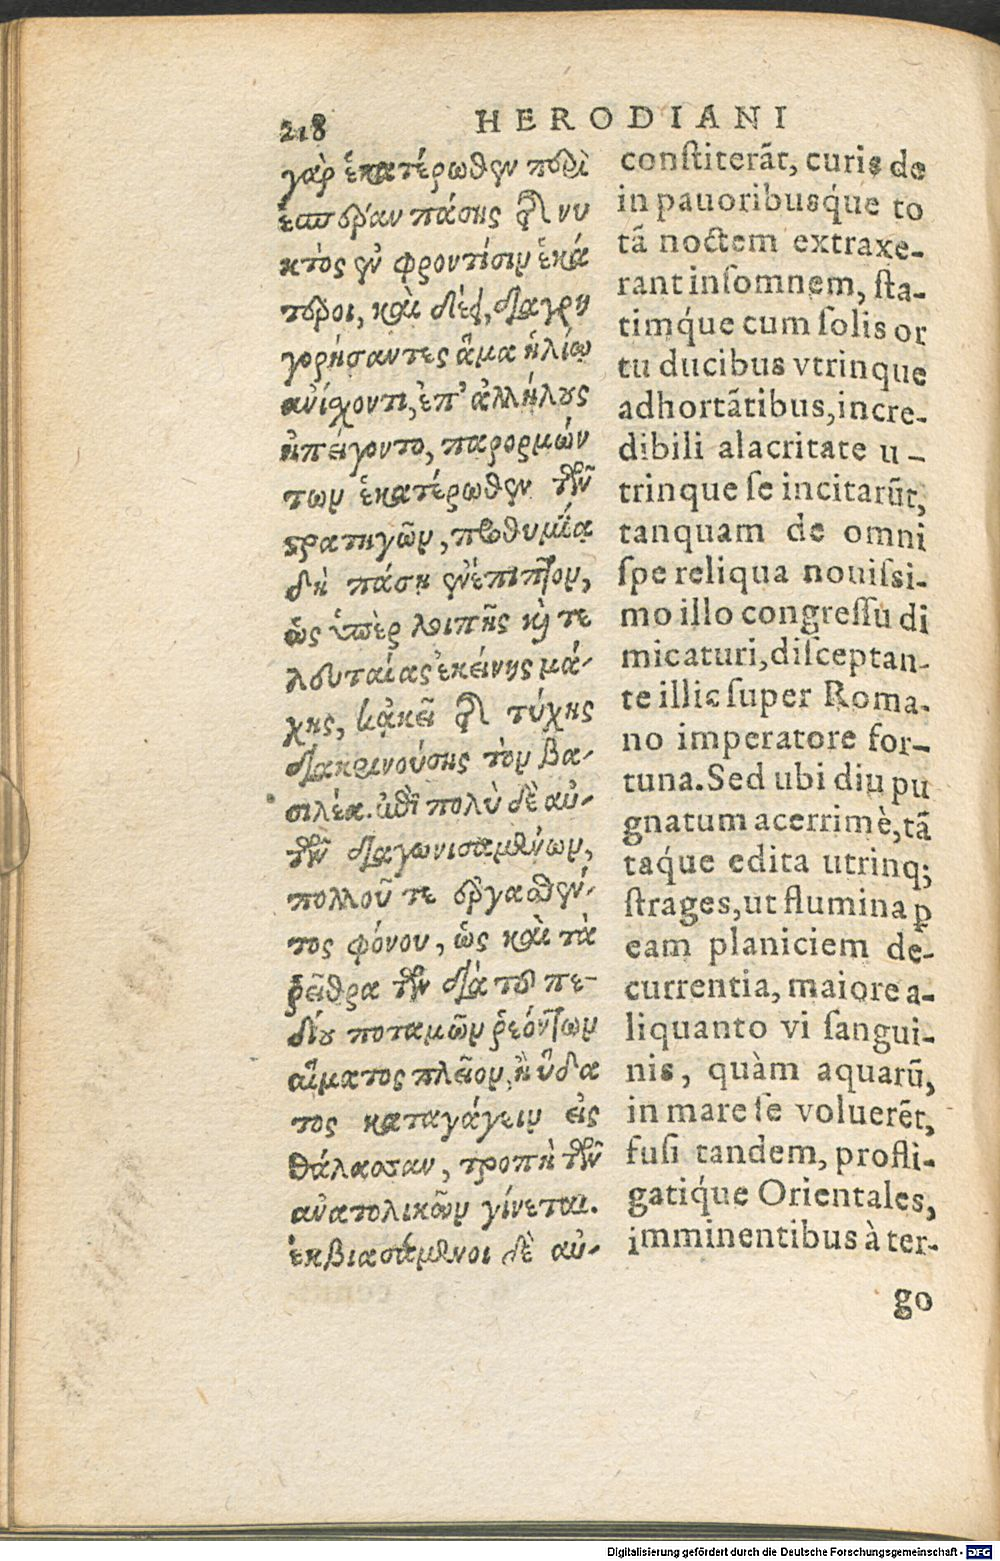 218 HERODIANI
γὰρ ἑκατέρωθεν περὶ
ἑσπέραν πάσης τῆς νυ
κτὸς ἐν φροντίσιν ἑκά
τεροι, καὶ δέει, διαγρη
γορήσαντες ἅμα ἡλίῳ
ἀνίσχοντι, ἐπ' ἀλλήλους
ἠπείγοντο, παρορμών
των ἑκατέρωθεν τῶν
στρατηγῶν, προθυμίᾳ
δὴ πάσῃ ἐνέπιπτον,
ὡς ὑπὲρ λοιπῆς καὶ τε
λευταίας ἐκείνης μά-
χης, κἀκεῖ τῆς τύχης
διακρινούσης τὸν βα-
σιλέα. ἐπὶ πολὺ δὲ αὐ-
τῶν διαγωνισαμένων,
πολλοῦ τε ἐργασθέν-
τος φόνου, ὡς καὶ τὰ
ῥεῖθρα τῶν διὰ τοῦ πε-
δίου ποταμῶν ῥεόντων
αἵματος πλεῖον, ἢ ὕδα
τος καταγάγειν εἰς
θάλασσαν, τροπὴ τῶν
ἀνατολικῶν γίνεται.
ἐκβιασάμενοι δὲ αὐ-
constiterāt, curis de
in pauoribusq́ue to
tā noctem extraxe-
rant insomnem, sta-
timq́ue cum solis or
tu ducibus vtrinque
adhortātibus, incre-
dibili alacritate u-
trinque se incitarūt,
tanquam de omni
spe reliqua nouissi-
mo illo congressu di
micaturi, disceptan-
te illic super Roma-
no imperatore for-
tuna. Sed ubi diu pu
gnatum acerrimè, tā
taq́ue edita utrinq;
strages, ut flumina ꝑ
eam planiciem de-
currentia, maiore a-
liquanto vi sangui-
nis, quàm aquarū,
in mare se voluerēt,
fusi tandem, profli-
gatiq́ue Orientales,
imminentibus à ter-
go
Digitalisierung gefördert durch die Deutsche Forschungsgemeinschaft - DFG